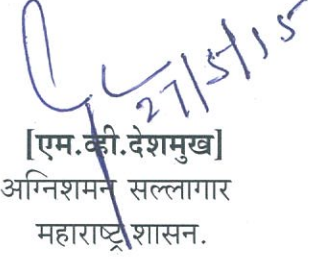 27/5/15
[एम.व्ही.देशमुख]
अग्निशमन सल्लागार
महाराष्ट्र शासन.